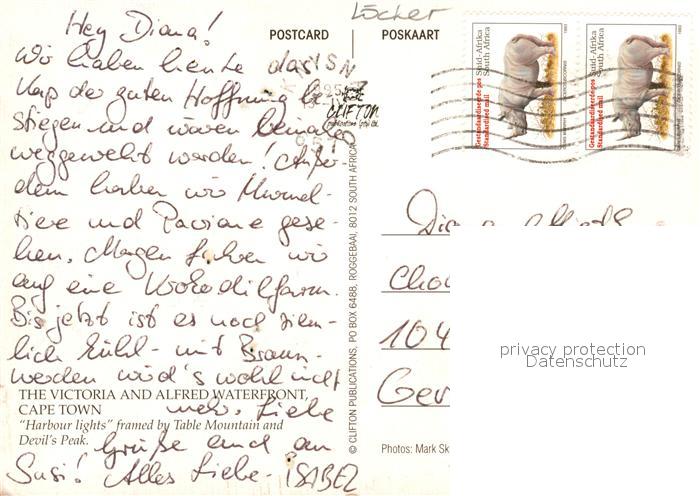 Löcher
POSTCARD
POSKAART
Hey Diana!
Wir haben heute das
Kap der guten Hoffnung be-
stiegen und wären beinahe
weggeweht worden! Außer-
dem haben wir Murmel-
tiere und Paviane gese-
hen. Morgen fahren wir
auf eine Krokodilfarm.
Bis jetzt ist es noch ziem-
lich kühl - mit Braun-
werden wird's wohl nicht
mehr. Liebe
Grüße auch an
Susi! Alles Liebe - ISABEL
THE VICTORIA AND ALFRED WATERFRONT,
CAPE TOWN
"Harbour lights" framed by Table Mountain and
Devil's Peak.
CLIFTON
© CLIFTON PUBLICATIONS, PO BOX 6488, ROGGEBAAI, 8012 SOUTH AFRICA
Suid-Afrika
South Africa
Gestandaardiseerde pos
Standardised mail
1993
Suid-Afrika
South Africa
Gestandaardiseerde pos
Standardised mail
1993
104
Ger
Photos: Mark Sk
privacy protection
Datenschutz